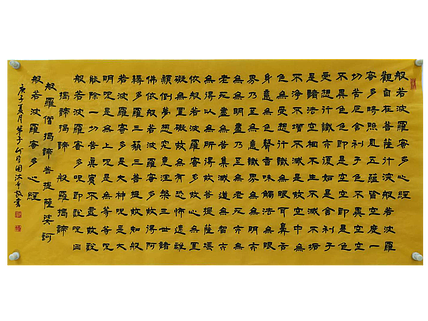 般若波羅蜜多心經
觀自在菩薩行深般若波羅
蜜多時照見五蘊皆空度一
切苦厄舍利子色不異空空
不異色色即是空空即是色
受想行識亦復如是舍利子
是諸法空相不生不滅不垢
不淨不增不減是故空中無
色無受想行識無眼耳鼻舌
身意無色聲香味觸法無眼
界乃至無意識界無無明亦
無無明盡乃至無老死亦無
老死盡無苦集滅道無智亦
無得以無所得故菩提薩埵
依般若波羅蜜多故心無罣
礙無罣礙故無有恐怖遠離
顛倒夢想究竟涅槃三世諸
佛依般若波羅蜜多故得阿
耨多羅三藐三菩提故知般
若波羅蜜多是大神咒是大
明咒是無上咒是無等等咒
能除一切苦真實不虛故說
般若波羅蜜多咒即說咒曰
揭諦揭諦 般羅揭諦
般羅僧揭諦菩提薩婆訶
般若波羅蜜多心經
庚子夏月